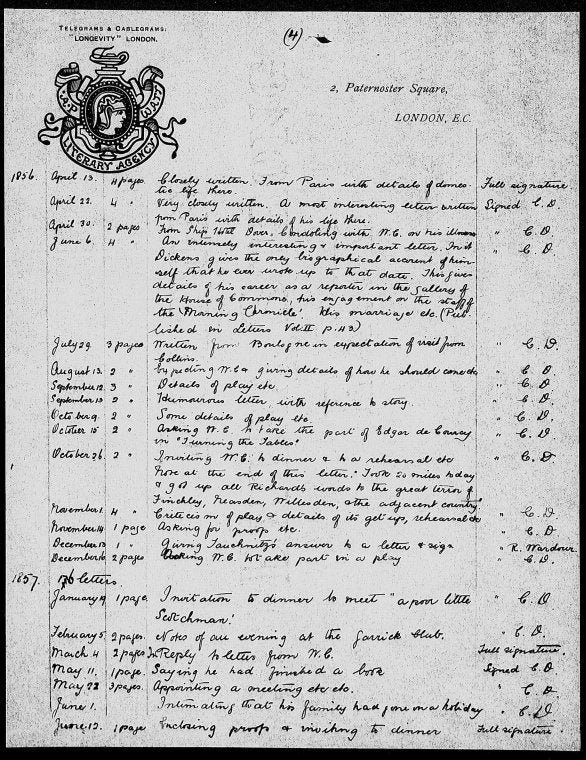 (4)
TELEGRAMS & CABLEGRAMS:
"LONGEVITY" LONDON.
A.P. WATT
LITERARY AGENCY
2, Paternoster Square,
LONDON, E.C.
1856. April 13. 4 pages. Closely written. From Paris with details of domes- Full signature.
tic life there.
April 22. 4 " Very closely written. A most interesting letter written Signed C. D.
from Paris with details of his life there.
April 30. 2 pages From Ship Hotel Dover, Condoling with W.C. on his illness " C. D.
June 6. 4 " An intensely interesting & important letter. In it " C. D.
Dickens gives the only biographical account of him-
self that he ever wrote up to that date. This gives
details of his career as a reporter in the gallery of
the House of Commons, his engagement on the staff of
the 'Morning Chronicle'. His marriage etc. (Pub-
lished in Letters Vol. II p. 43)
July 29. 3 pages Written from Boulogne in expectation of visit from " C. D.
Collins.
August 13. 2 " W.C. & giving details of how he should come etc " C. D.
September 12. 3 " Details of play etc. " C. D.
September 13 2 " Humourous letter, with reference to story. " C. D.
October 9. 2 " Some details of play etc. " C. D.
October 15 2 " Asking W.C. to take the part of Edgar de Courcy " C. D.
in "Turning the Tables."
October 26. 2 " Inviting W.C. to dinner & to a rehearsal etc " C. D.
Note at the end of this letter. "Took 20 miles today
& got up all Richard's words to the great terror of
Finchley, Neasden, Willesden, & the adjacent country."
November 1. 4 " Criticism of play & details of its get up, rehearsal etc " C. D.
November 14 1 page Asking for proofs etc. " C. D.
December 1 " Giving Tauchnitz's answer to a letter & sign " R. Wardour.
December 2 pages Asking W.C. to take part in a play " C. D.
1857. letters.
January 19 1 page. Invitation to dinner to meet "a poor little " C. D.
Scotchman!
February 5. 2 pages. Notes of an evening at the Garrick Club. " C. D.
March 4 2 pages In Reply to letter from W.C. Full signature.
May 11. 1 page. Saying he had finished a book Signed C. D.
May 22 3 pages. Appointing a meeting etc etc. " C. D
June 1. Intimating that his family had gone on a holiday " C. D
June 12. 1 page Enclosing proofs & inviting to dinner Full signature.